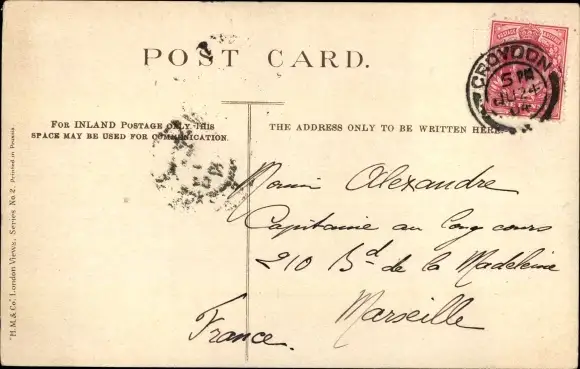 POST CARD.
FOR INLAND POSTAGE ONLY THIS
SPACE MAY BE USED FOR COMMUNICATION.
THE ADDRESS ONLY TO BE WRITTEN HERE.
CROYDON
5 PM
Alexandre
Capitaine au long cours
210 Bd de la Madeleine
Marseille
France.
"H.M. & Co." London Views. Series No. 2. Printed in Prussia.